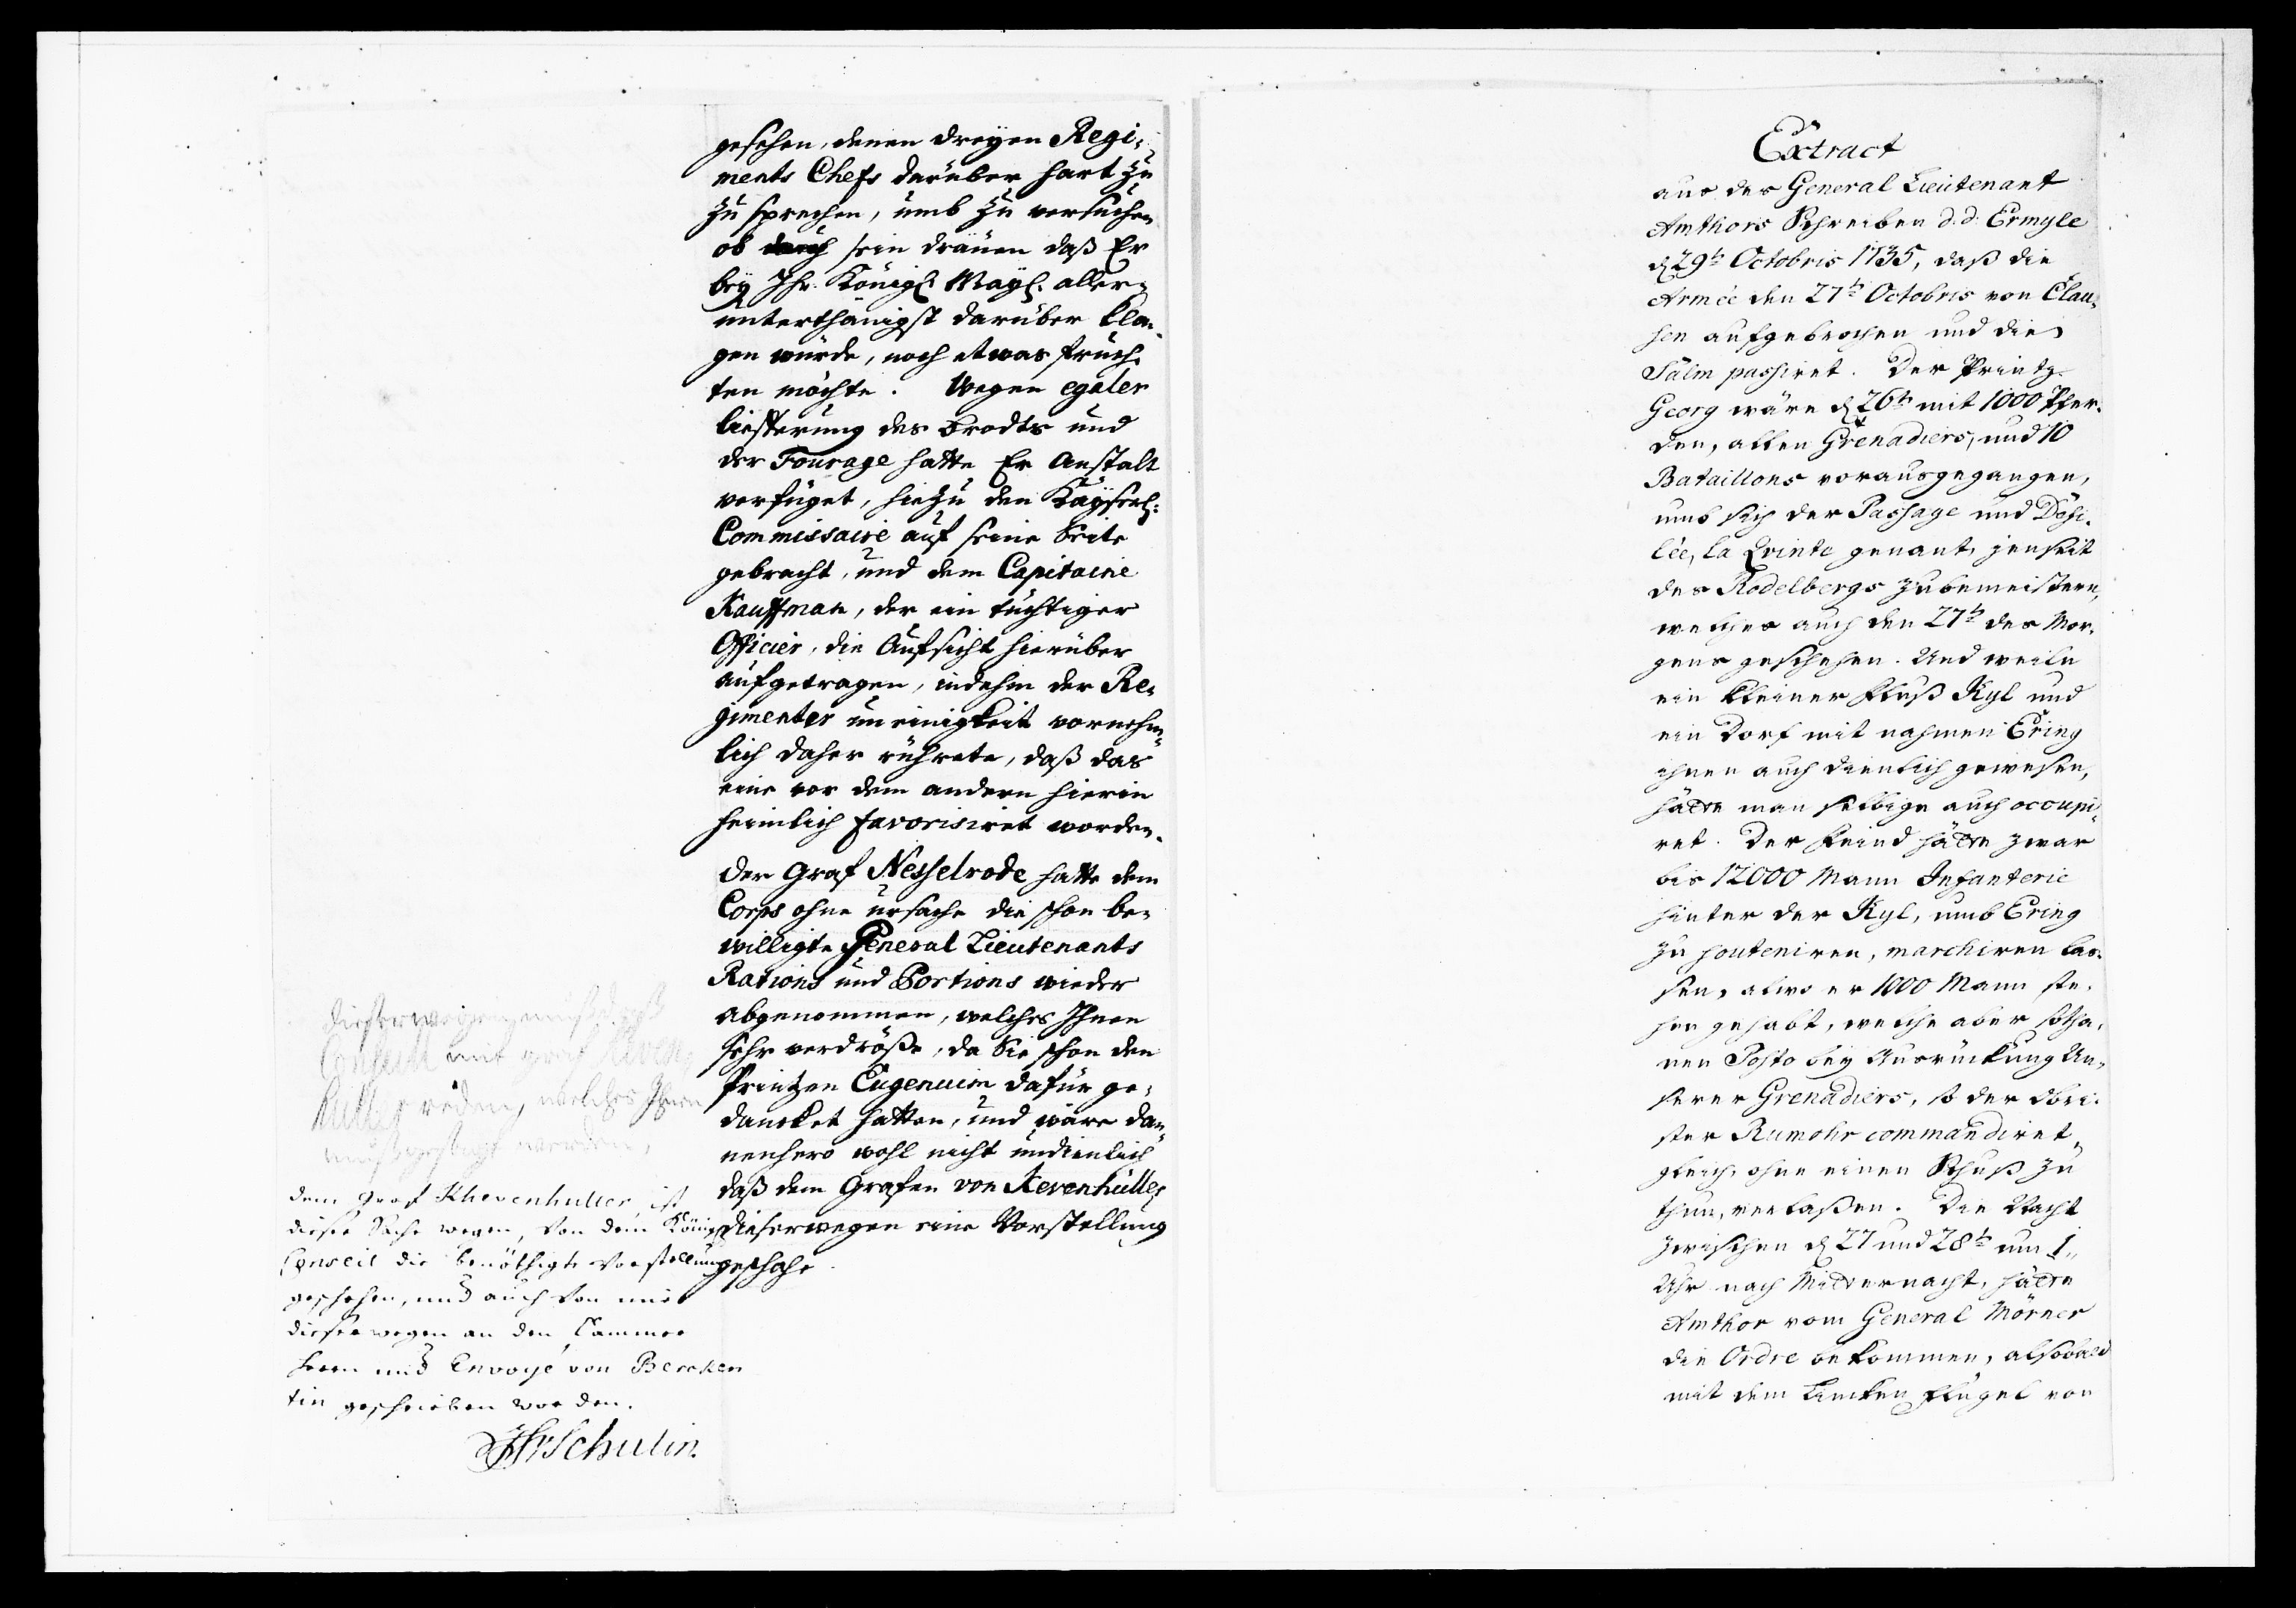 gesehen, denen dreÿen Regi-
ments Chefs darüber hart zu
zu sprechen, umb zu versuchen
ob durch sein dräuen daß Er
beÿ Ihr. Königl. Mayl. aller-
unterthänigst darüber kla-
gen würde, noch etwas fruch-
ten möchte. Wegen egaler
liefferung des Brodts und
der Fourage hatte Er Anstalt
verfüget, hiezu den Kaÿserl:
Commissaire auf seine Seite
gebracht, und dem Capitaine
Kauffman, der ein tüchtiger
Officier, die Aufsicht hierüber
aufgetragen, indehm der Re-
gimenter uneinigkeit vornehm-
lich daher rührete, daß das
eine vor dem andern hierin
heimlich favorisiret worden.
Der Graf Nesselrode hatte dem
Corps ohne ursache die schon be-
willigte General Lieutenants
Rations und Portions wieder
abgenommen, welches Ihnen
sehr verdröße, da Sie schon den
Printzen Eugenium dafür ge-
dancket hatten, und wäre dan-
nenhero wohl nicht undienlich
daß dem Grafen von Kevenhüller
dieserwegen eine Vorstellung
geschehe.
dieserwegen muste das
Conseil mit graf Keven-
huller reden, welches Ihnen
muß gesagt werden,
dem Graf Khevenhuller ist
dieser Sache wegen, von dem Königl.
Conseil die benöthigte Vorstellung
geschehen, und auch von mir
dieserwegen an den Cammer
herrn und Envoyé von Bercken
tin geschrieben worden.
JHvSchulin.
Extract
aus des General Lieutenant
Amthors Schreiben d. d. Ermyle
d. 29t. Octobris 1735, daß die
Armée den 27t. Octobris von Clau-
sen aufgebrochen und die
Salm passiret. Der Printz
Georg wäre d. 26t. mit 1000 Pfer-
den, allen Grenadiers, und 10
Bataillons vorausgegangen,
umb sich der Passage und Dési-
lée, la Quinte genant, jenseit
des Rodelbergs zu bemeistern,
welches auch den 27t. des Mor-
gens geschehen. Und weiln
ein kleiner Fluß Kyl und
ein Dorf mit nahmen Ering
ihnen auch dienlich gewesen,
hätte man selbige auch occupi-
ret. Der Feind hätte zwar
bis 12000 Mann Infanterie
hinter der Kyl, umb Ering
zu souteniren, marchiren las-
sen, alwo er 1000 Mann ste-
hen gehabt, welche aber sotha-
nen Posto bey Anrückung Un-
serer Grenadiers, so der Obri-
ster Rumohr commandiret,
gleich, ohne einen Schuß zu
thun, verlaßen. Die Nacht
zwischen d. 27 und 28t. um 1.
Uhr nach Mitternacht, hätte
Amthor vom General Mörner
die Ordre bekommen, alsobald
mit dem Lincken Flügel von